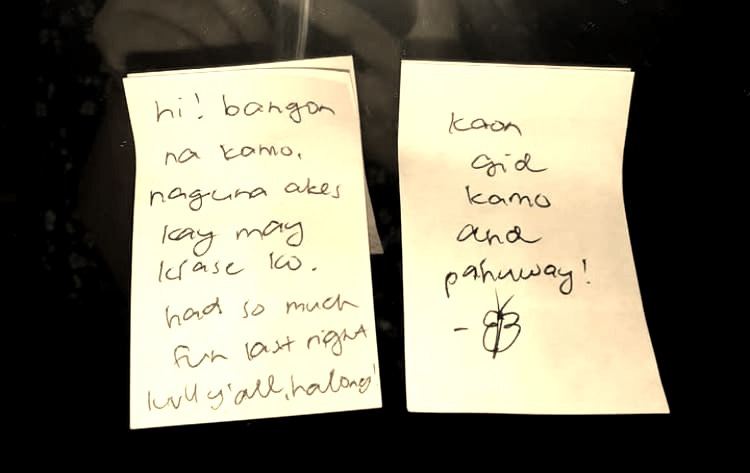 hi! bangon
na kamo.
naguna akes
kay may
klase ko.
had so much
fun last night
luvv y'all, halong!
kaon
gid
kamo
and
pahuway!